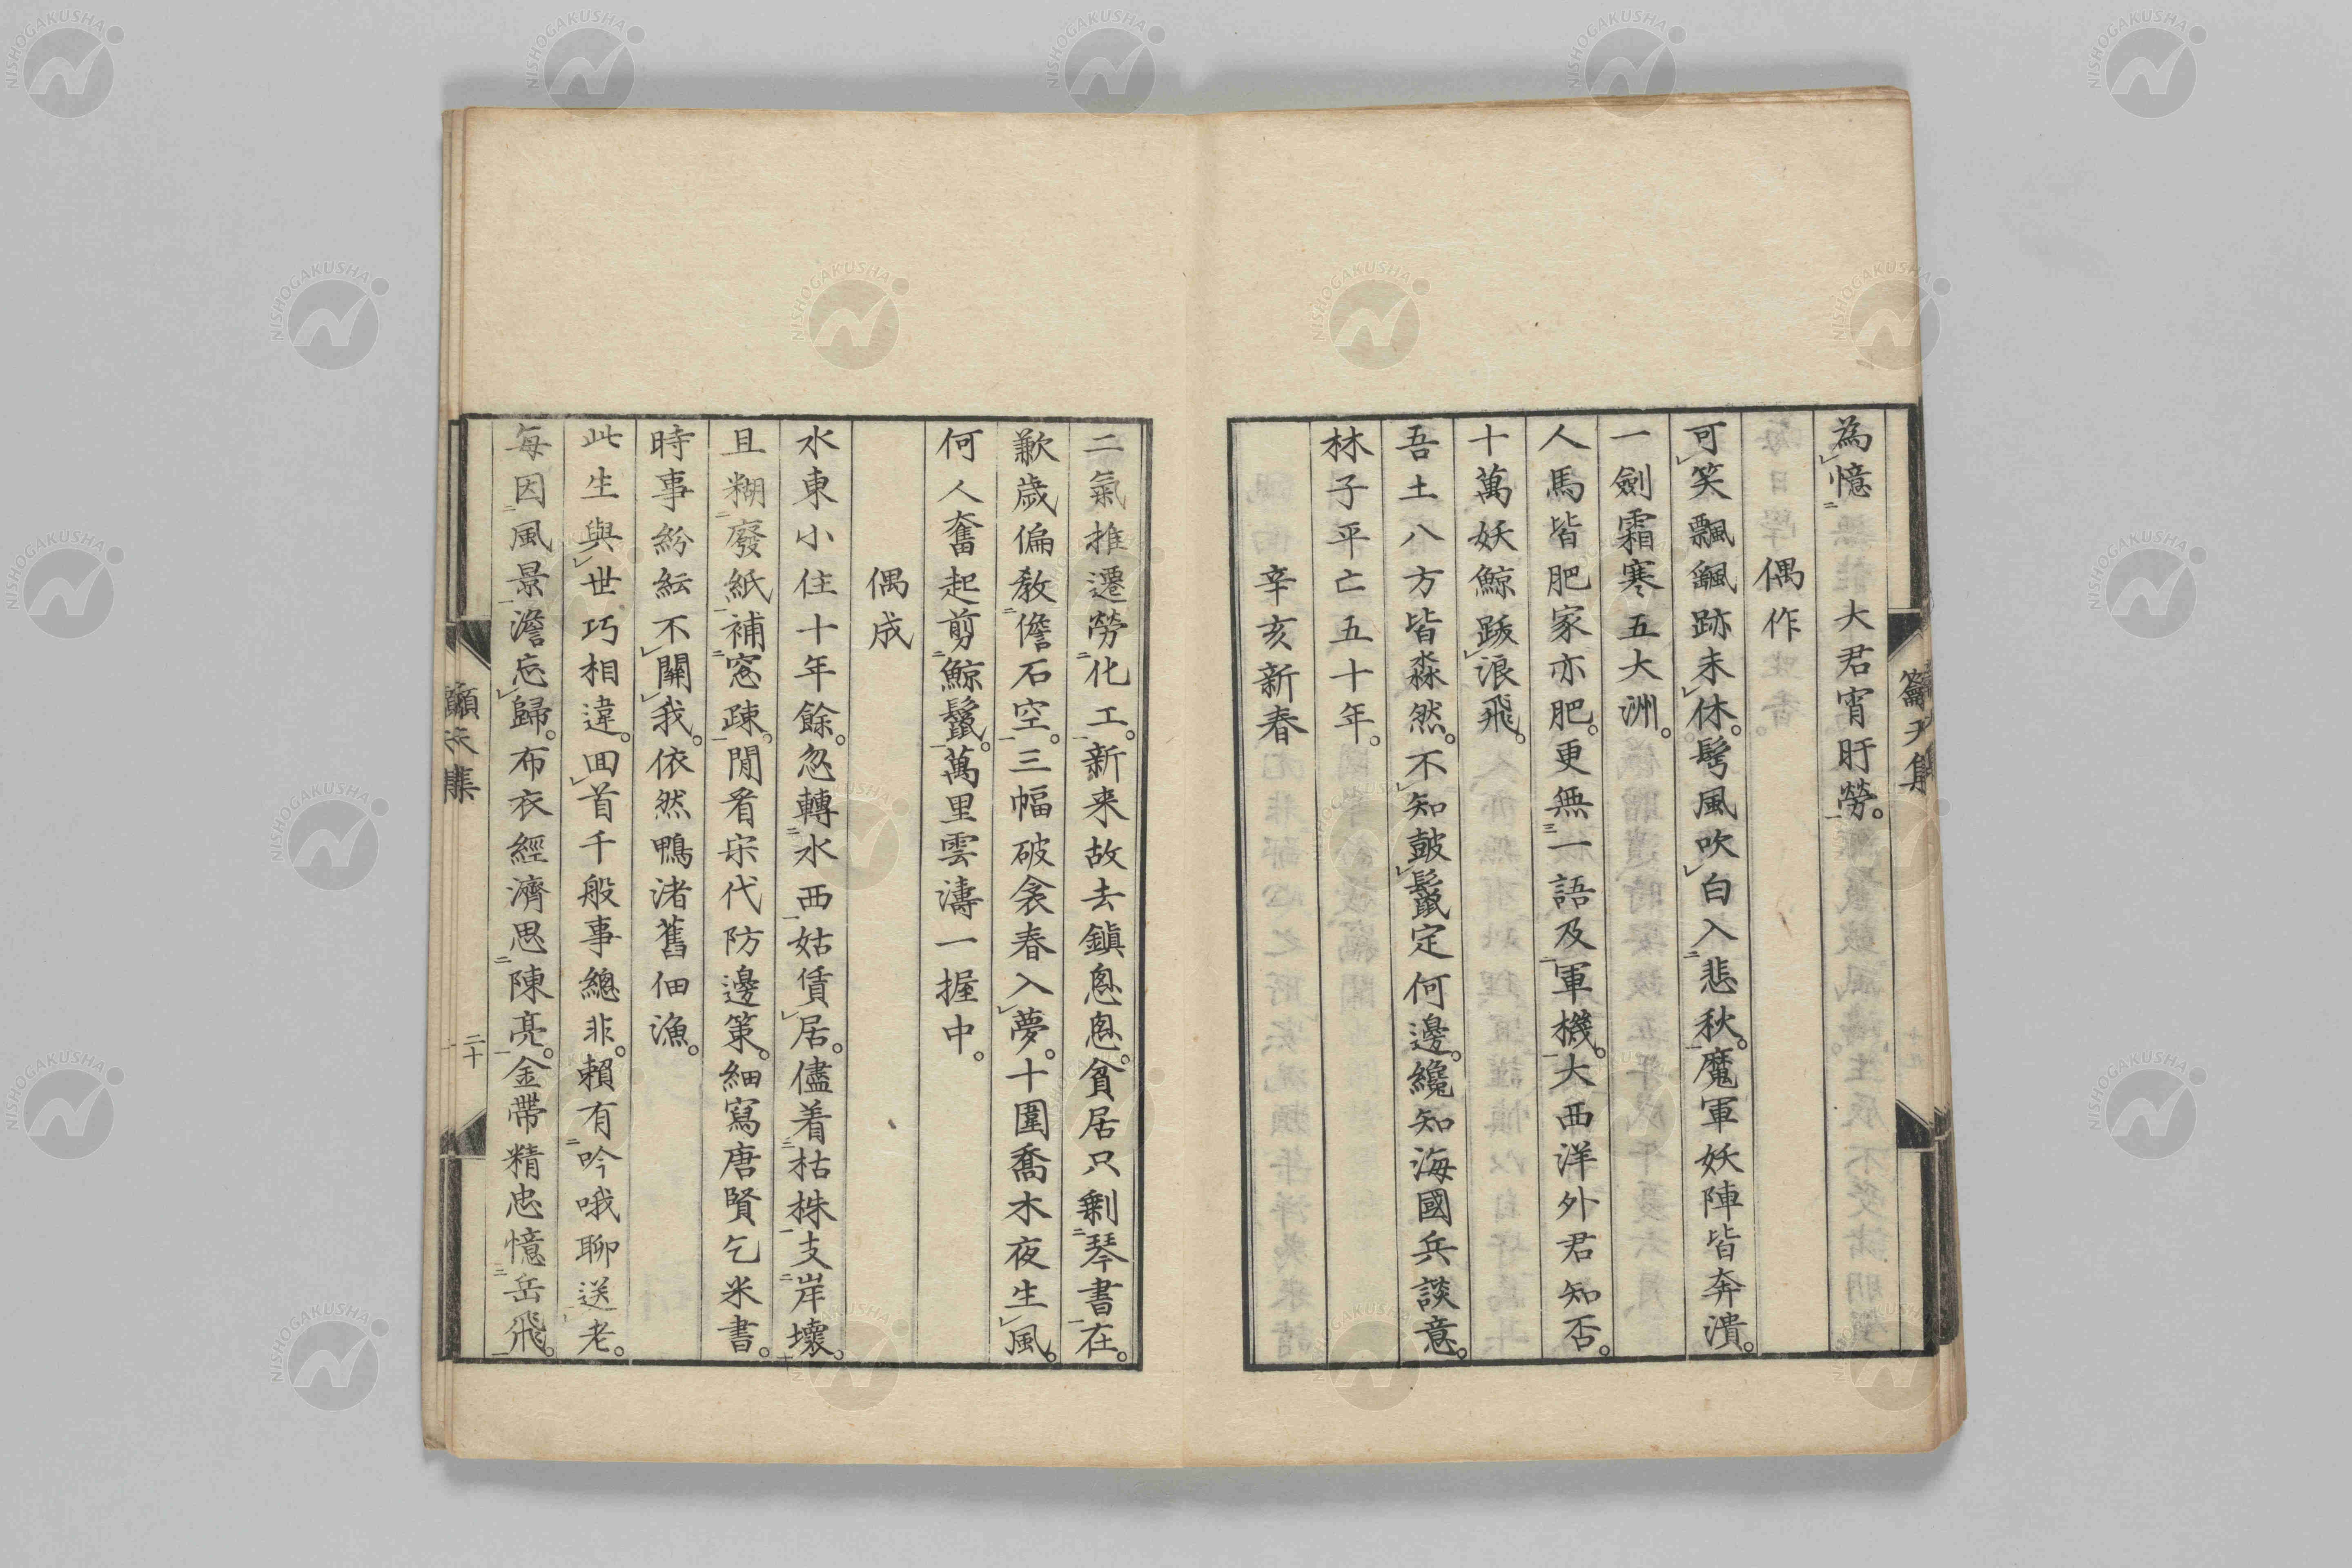 為憶　大君宵旰勞。
偶作
可笑飄飄跡未休。鬂風吹白入悲秋。魔軍妖陣皆奔潰。
一劍霜寒五大洲。
人馬皆肥家亦肥。更無一語及軍機。大西洋外君知否。
十萬妖鯨跋浪飛。
吾土八方皆淼然。不知皷鬣定何邊。纔知海國兵談意。
林子平亡五十年。
辛亥新春
二氣推遷勞化工。新来故去鎮悤悤。貧居只剩琴書在。
歉歳偏教儋石空。三幅破衾春入夢。十圍喬木夜生風。
何人奮起剪鯨鬣。萬里雲濤一握中。
偶成
水東小住十年餘。忽轉水西姑賃居。儘着枯株支岸壞。
且糊廢紙補窓疎。閒看宋代防邊策。細寫唐賢乞米書。
時事紛紜不關我。依然鴨渚舊佃漁。
此生與世巧相違。回首千般事總非。賴有吟哦聊送老。
每因風景澹忘歸。布衣經濟思陳亮。金帶精忠憶岳飛。
二十
NISHOGAKUSHA